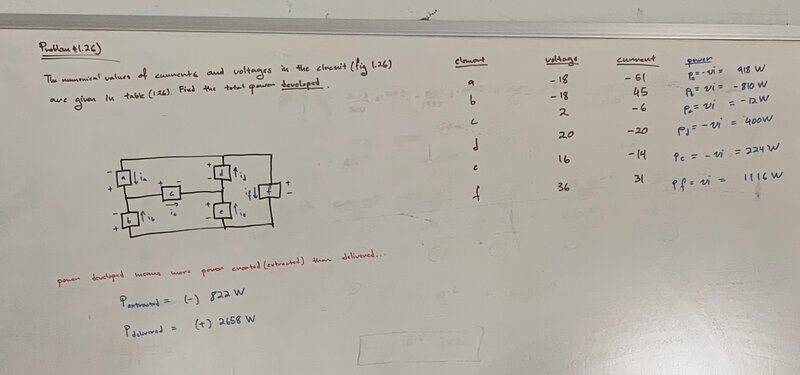 Problem #1.26)
The numerical values of currents and voltages in the circuit (fig 1.26)
are given in table (1.26). Find the total power developed.
element voltage current power
a -18 -51 Pa = -vi = 918 W
b -18 45 Pb = vi = -810 W
c 2 -6 Pc = vi = -12 W
d 20 -20 Pd = -vi = 400 W
e 16 -14 Pe = -vi = 224 W
f 36 31 Pf = vi = 1116 W
- + - + +
a ↓ia c d ↑id if↓ f
+ ic → - -
- b ↑ib + e ↑ie
+ -
power developed means more power created (extracted) than delivered...
Pextracted = (-) 822 W
Pdelivered = (+) 2658 W